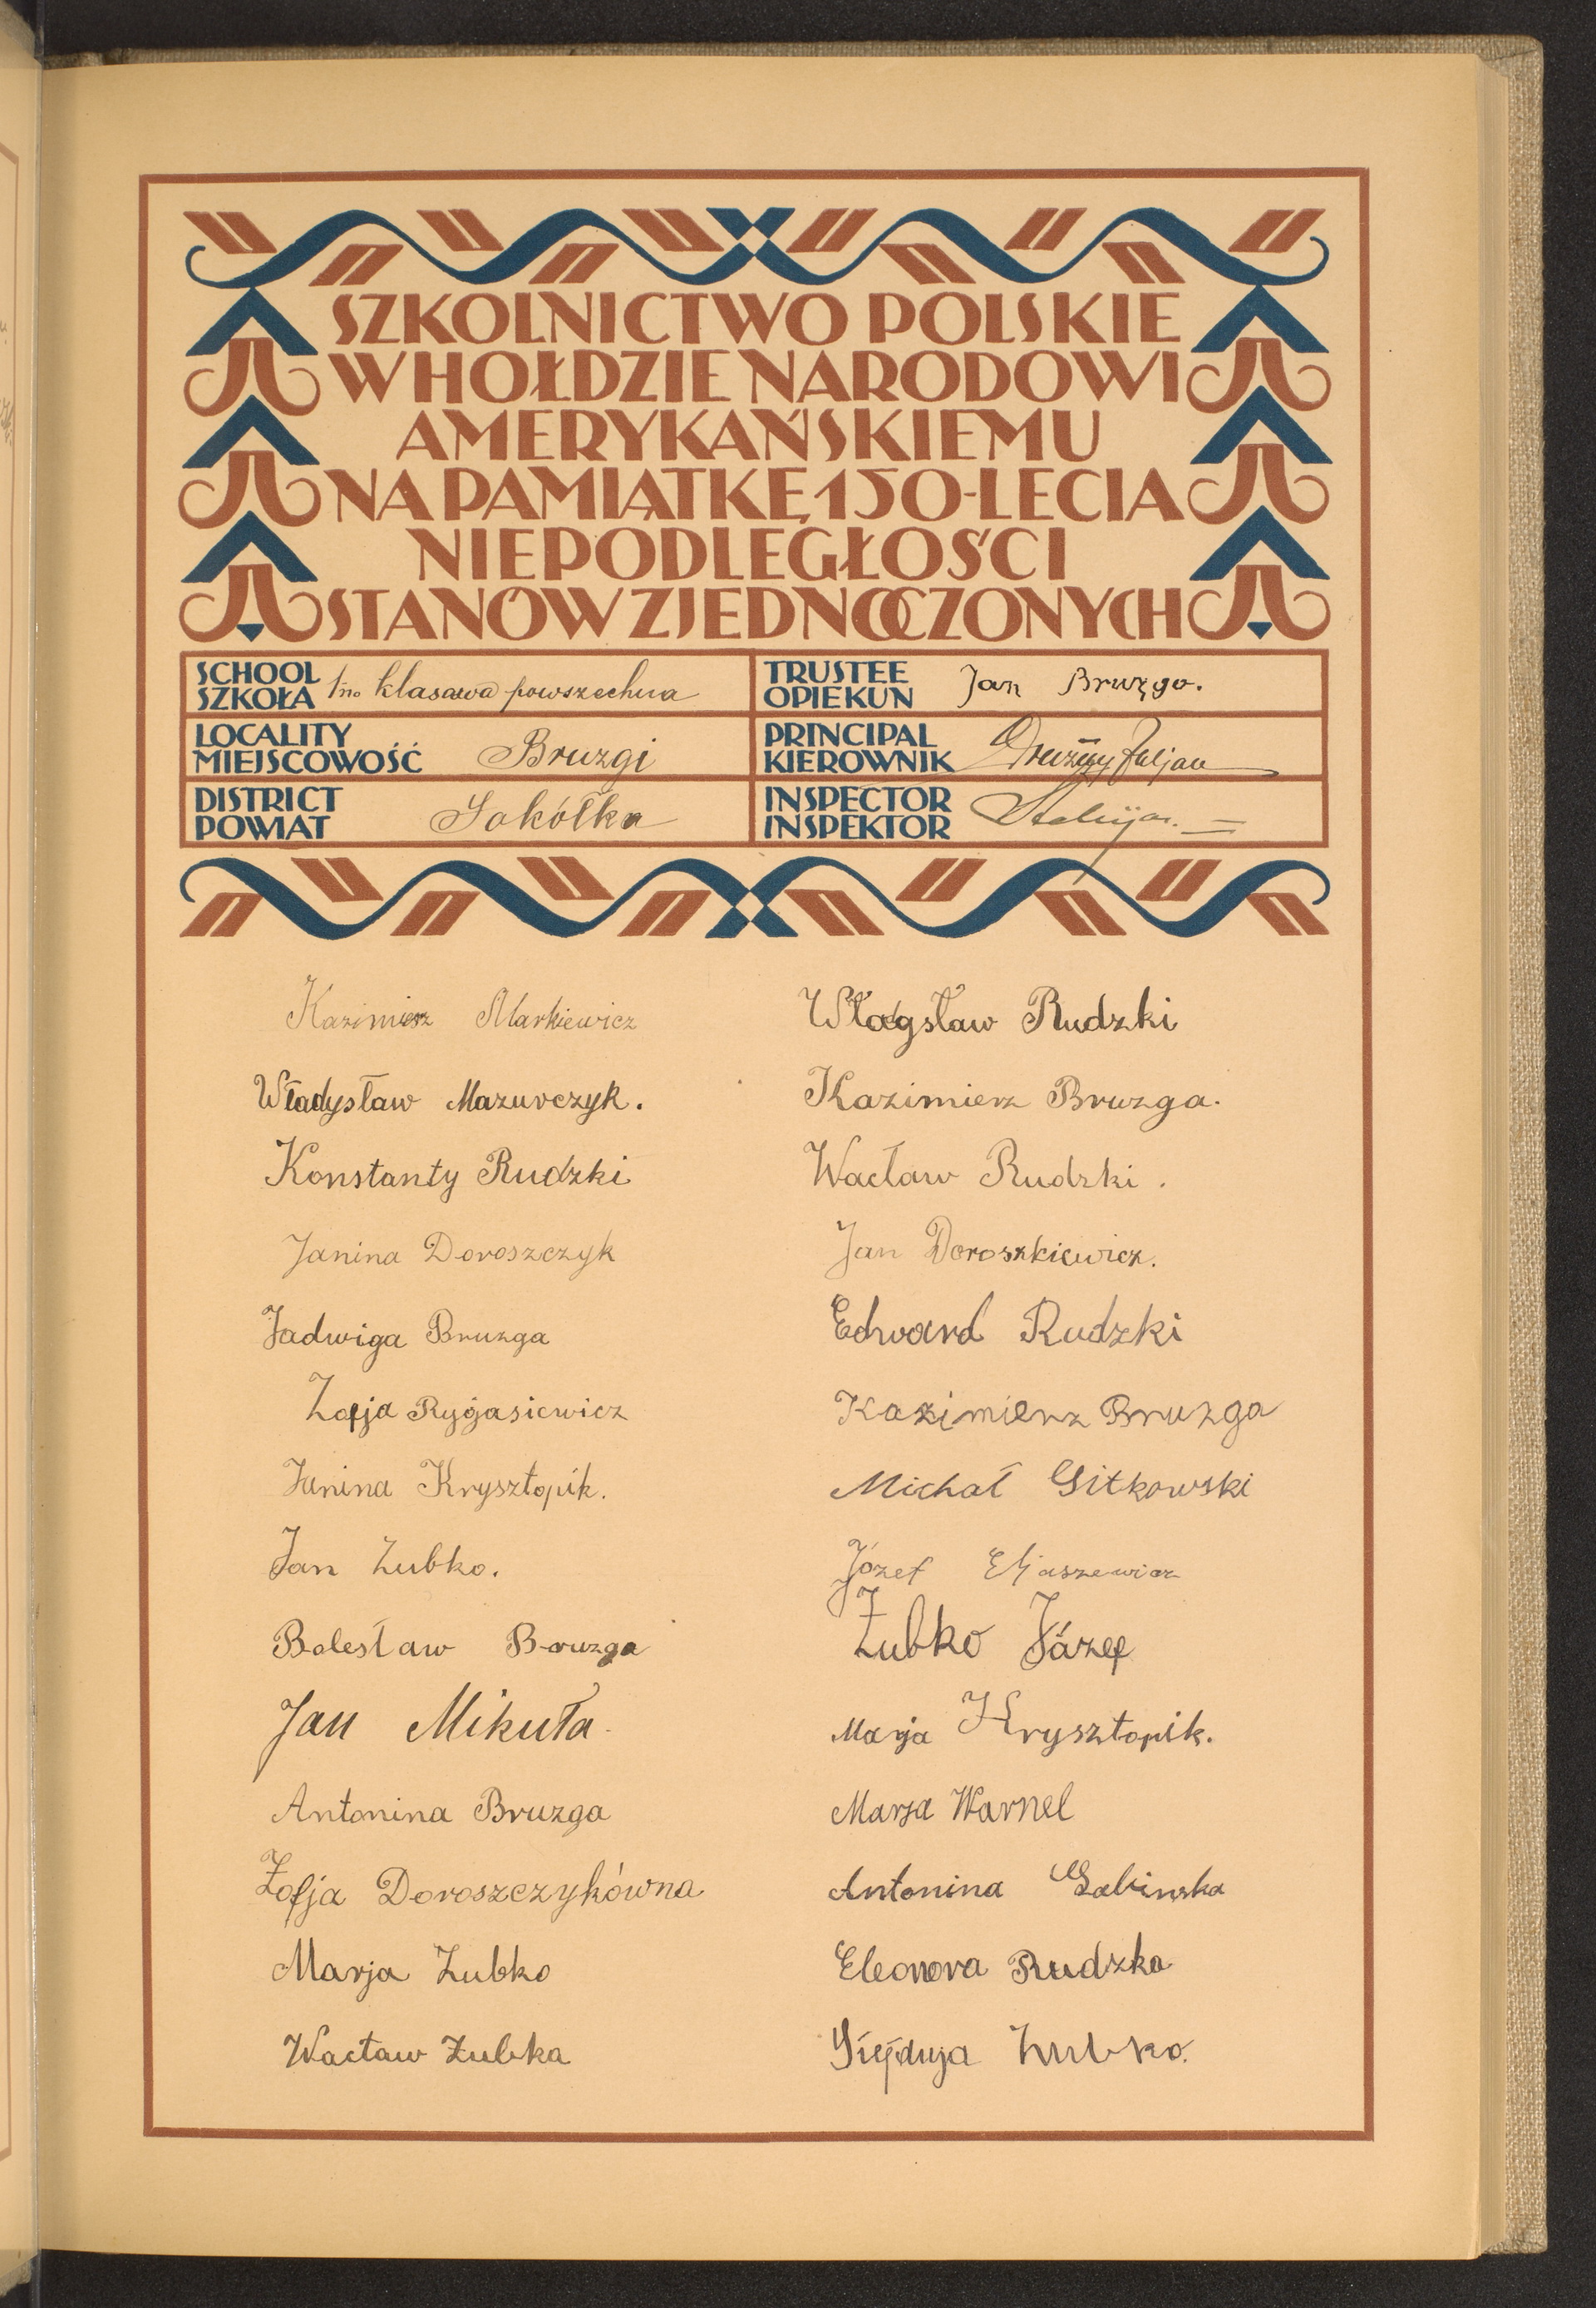 SZKOLNICTWO POLSKIE
W HOŁDZIE NARODOWI
AMERYKAŃSKIEMU
NA PAMIĄTKĘ 150-LECIA
NIEPODLEGŁOŚCI
STANÓW ZJEDNOCZONYCH
SCHOOL
SZKOŁA 1no klasowa powszechna
TRUSTEE
OPIEKUN Jan Bruzgo.
LOCALITY
MIEJSCOWOŚĆ Bruzgi
PRINCIPAL
KIEROWNIK Juljan
DISTRICT
POWIAT Sokółka
INSPECTOR
INSPEKTOR
Kazimierz Markiewicz
Władysław Mazurczyk.
Konstanty Rudzki
Janina Doroszczyk
Jadwiga Bruzga
Zofja Rygasiewicz
Janina Krysztopik.
Jan Zubko.
Bolesław Bruzga
Jan Mikuła
Antonina Bruzga
Zofja Doroszczykówna
Marja Zubko
Wacław Zubka
Rudzki
Kazimierz Bruzga.
Wacław Rudzki.
Jan Doroszkiewicz.
Edward Rudzki
Kazimierz Bruzga
Michał Gitkowski
Józef Eljaszewicz
Zubko Józef
Marja Krysztopik.
Marja Warnel
Antonina
Eleonora Rudzka
Zubko.